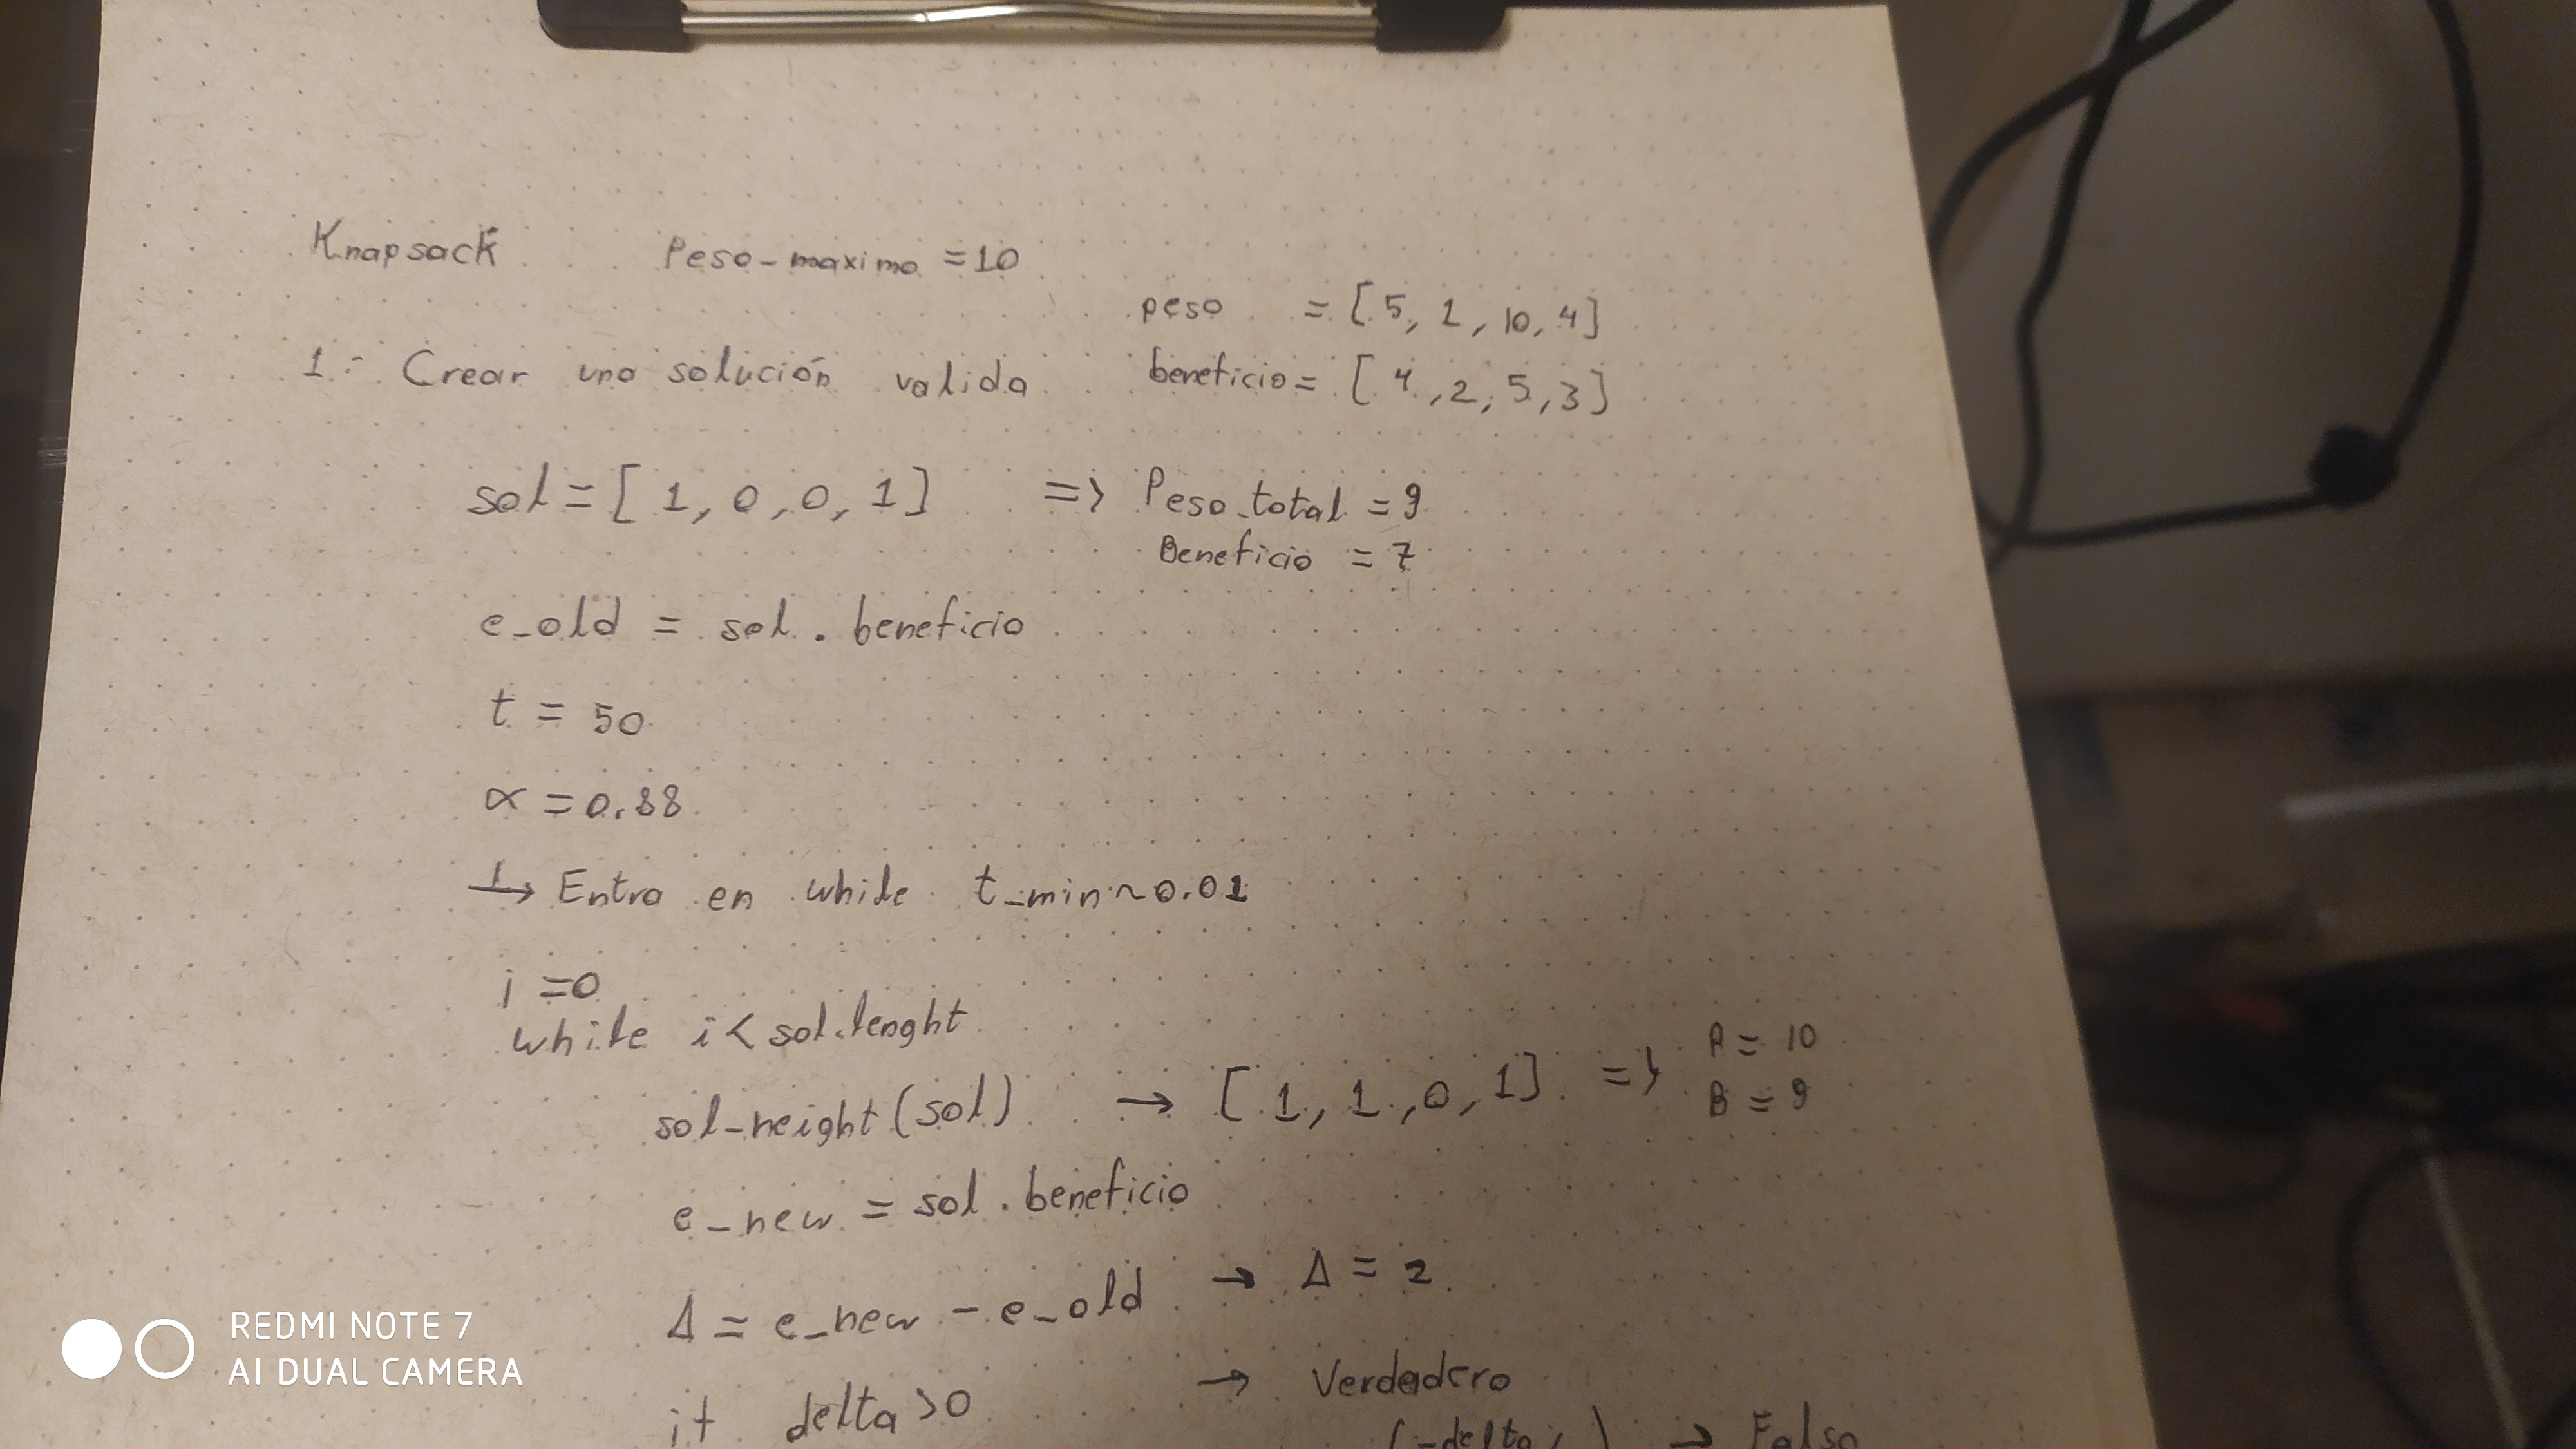 Knapsack Peso_maximo = 10
peso = [5, 1, 10, 4]
1.- Crear una solución valida beneficio = [4, 2, 5, 3]
sol = [1, 0, 0, 1] => Peso_total = 9
Beneficio = 7
e_old = sol.beneficio
t = 50
α = 0.88
→ Entra en while t_min ~ 0.01
i = 0
while i < sol.lenght
sol_neight(sol) → [1, 1, 0, 1] => P = 10
B = 9
e_new = sol.beneficio
Δ = e_new - e_old → Δ = 2
if delta > 0 → Verdadero
(-delta/ ) → Falso
REDMI NOTE 7
AI DUAL CAMERA